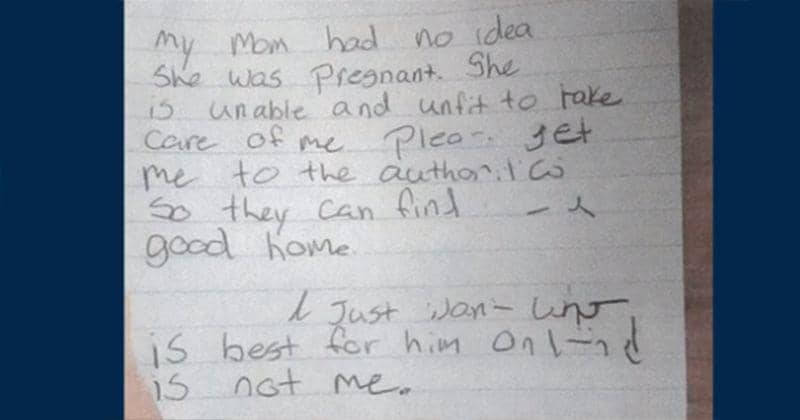 my mom had no idea
She was pregnant. She
is unable and unfit to take
care of me get
me to the
So they can find
good home.
I Just
is best for him
is not me.